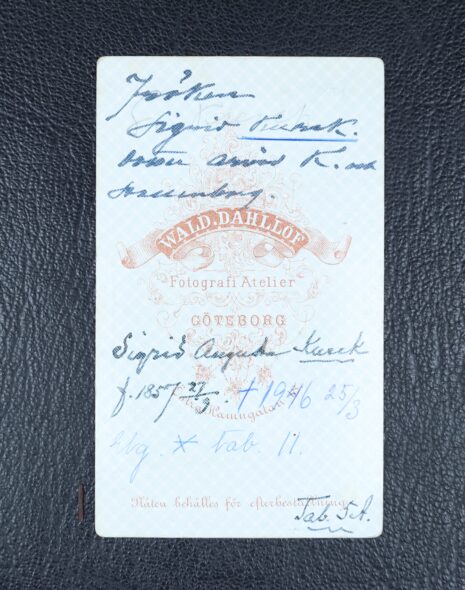 Fröken
Sigrid Kurck.
dotter Arvid K. och
WALD. DAHLLÖF
Fotografi Atelier
GÖTEBORG
Sigrid Augusta Kurck
f. 1857 27/9. † 1946 25/3
Hamngatan
Etg. × Tab. 11.
Plåten behålles för efterbeställning
Tab. 5A.